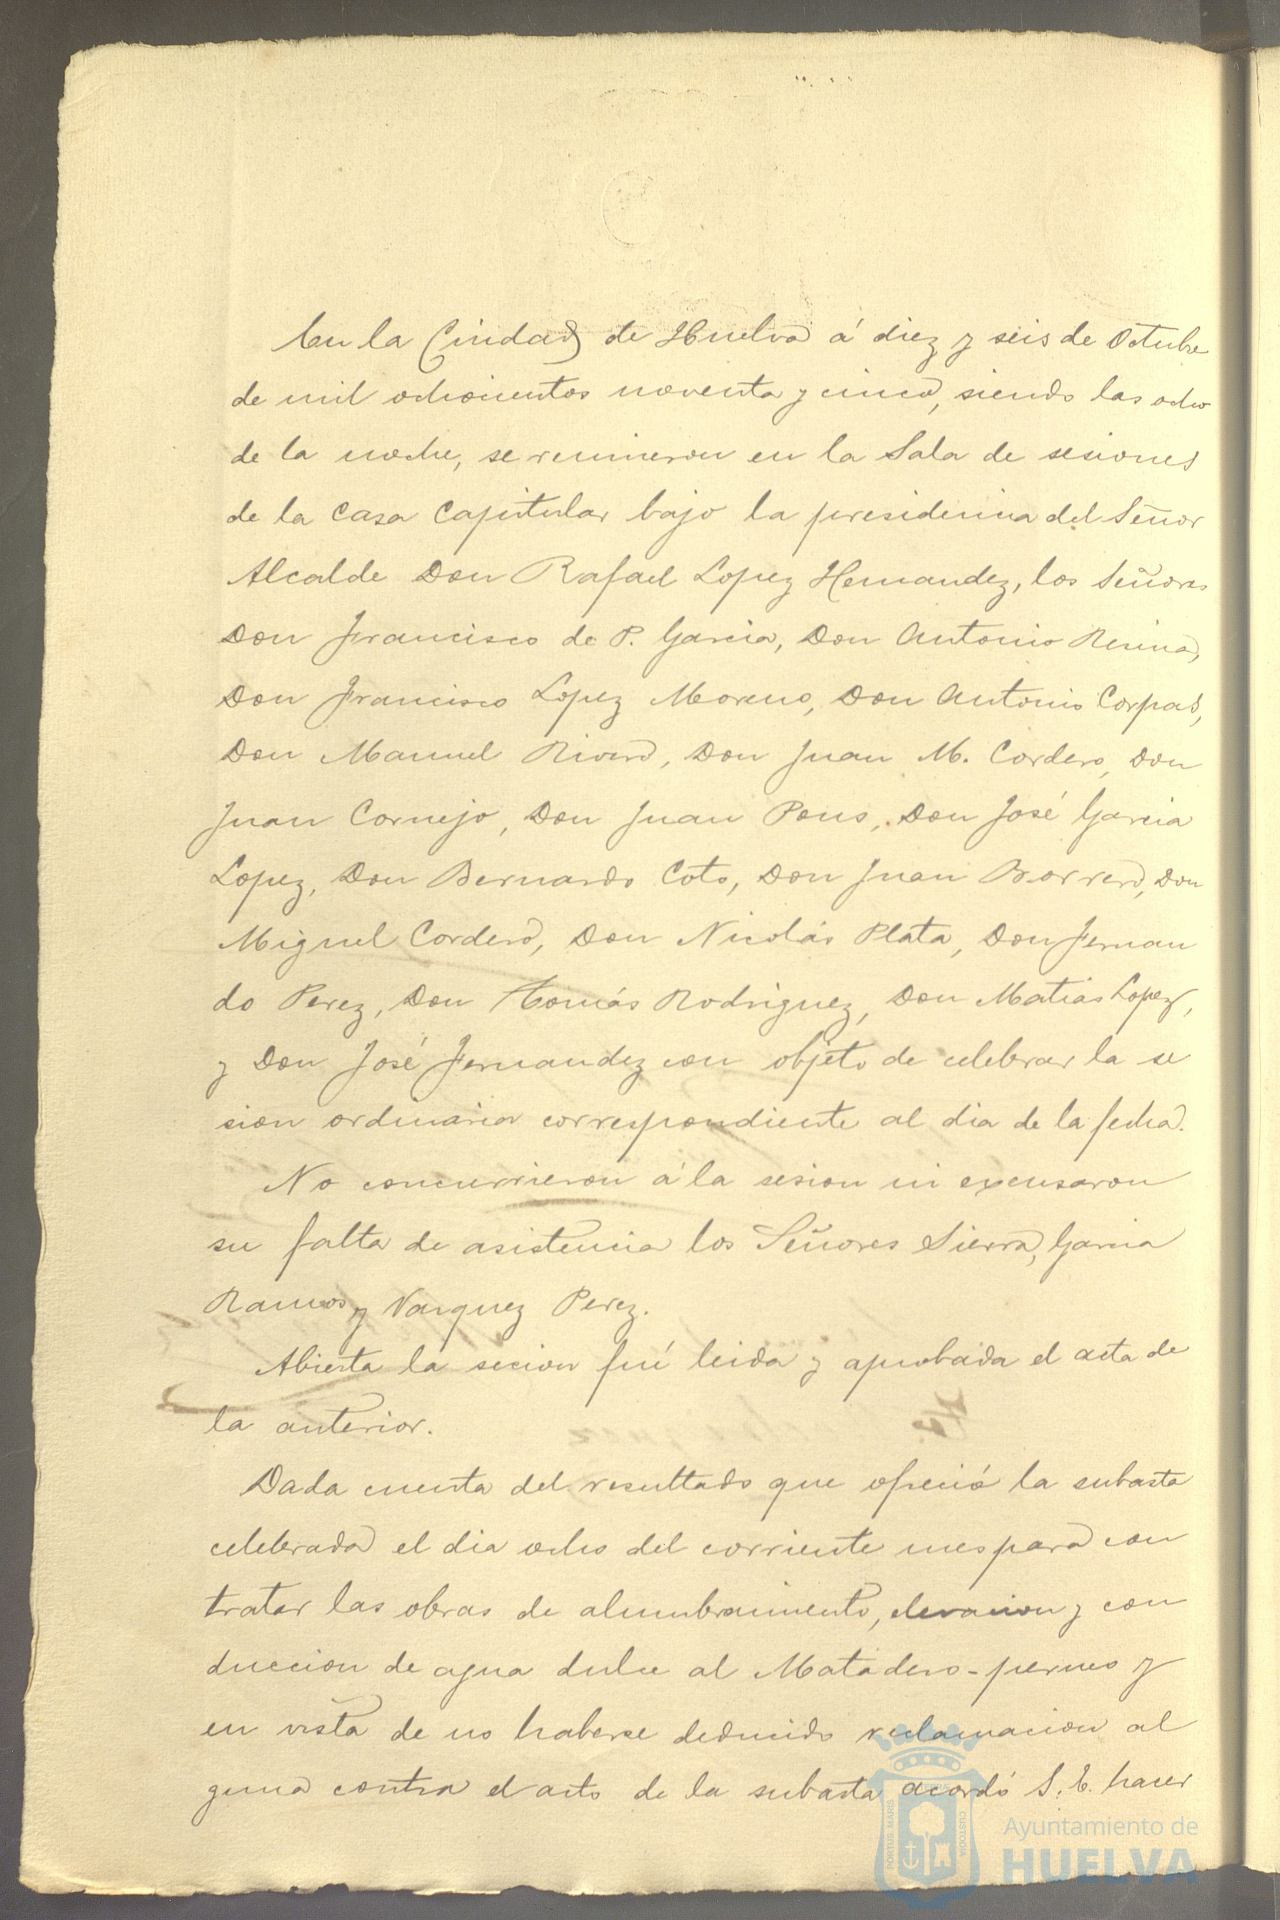 En la Ciudad de Huelva á diez y seis de Octubre
de mil ochocientos noventa y cinco, siendo las ocho
de la noche, se reunieron en la Sala de sesiones
de la Casa Capitular bajo la presidencia del Señor
Alcalde Don Rafael Lopez Hernandez, los Señores
Don Francisco de P. Garcia, Don Antonio Resina,
Don Francisco Lopez Moreno, Don Antonio Corpas,
Don Manuel Rivero, Don Juan M. Cordero, Don
Juan Cornejo, Don Juan Pons, Don José Garcia
Lopez, Don Bernardo Coto, Don Juan Borrero, Don
Miguel Cordero, Don Nicolás Plata, Don Fernan
do Perez, Don Tomás Rodriguez, Don Matias Lopez,
y Don José Fernandez con objeto de celebrar la se
sion ordinaria correspondiente al dia de la fecha.
No concurrieron á la sesion ni excusaron
su falta de asistencia los Señores Sierra, Garcia
Ramos y Vazquez Perez.
Abierta la secion fué leida y aprobada el acta de
la anterior.
Dada cuenta del resultado que ofreció la subasta
celebrada el dia ocho del corriente mes para con
tratar las obras de alumbramiento, elevacion y con
duccion de agua dulce al Matadero-perneo y
en vista de no haberse deducido reclamacion al
guna contra el acto de la subasta acordó S. E. hacer
PORTUS MARIS
CUSTODIA
Ayuntamiento de
HUELVA